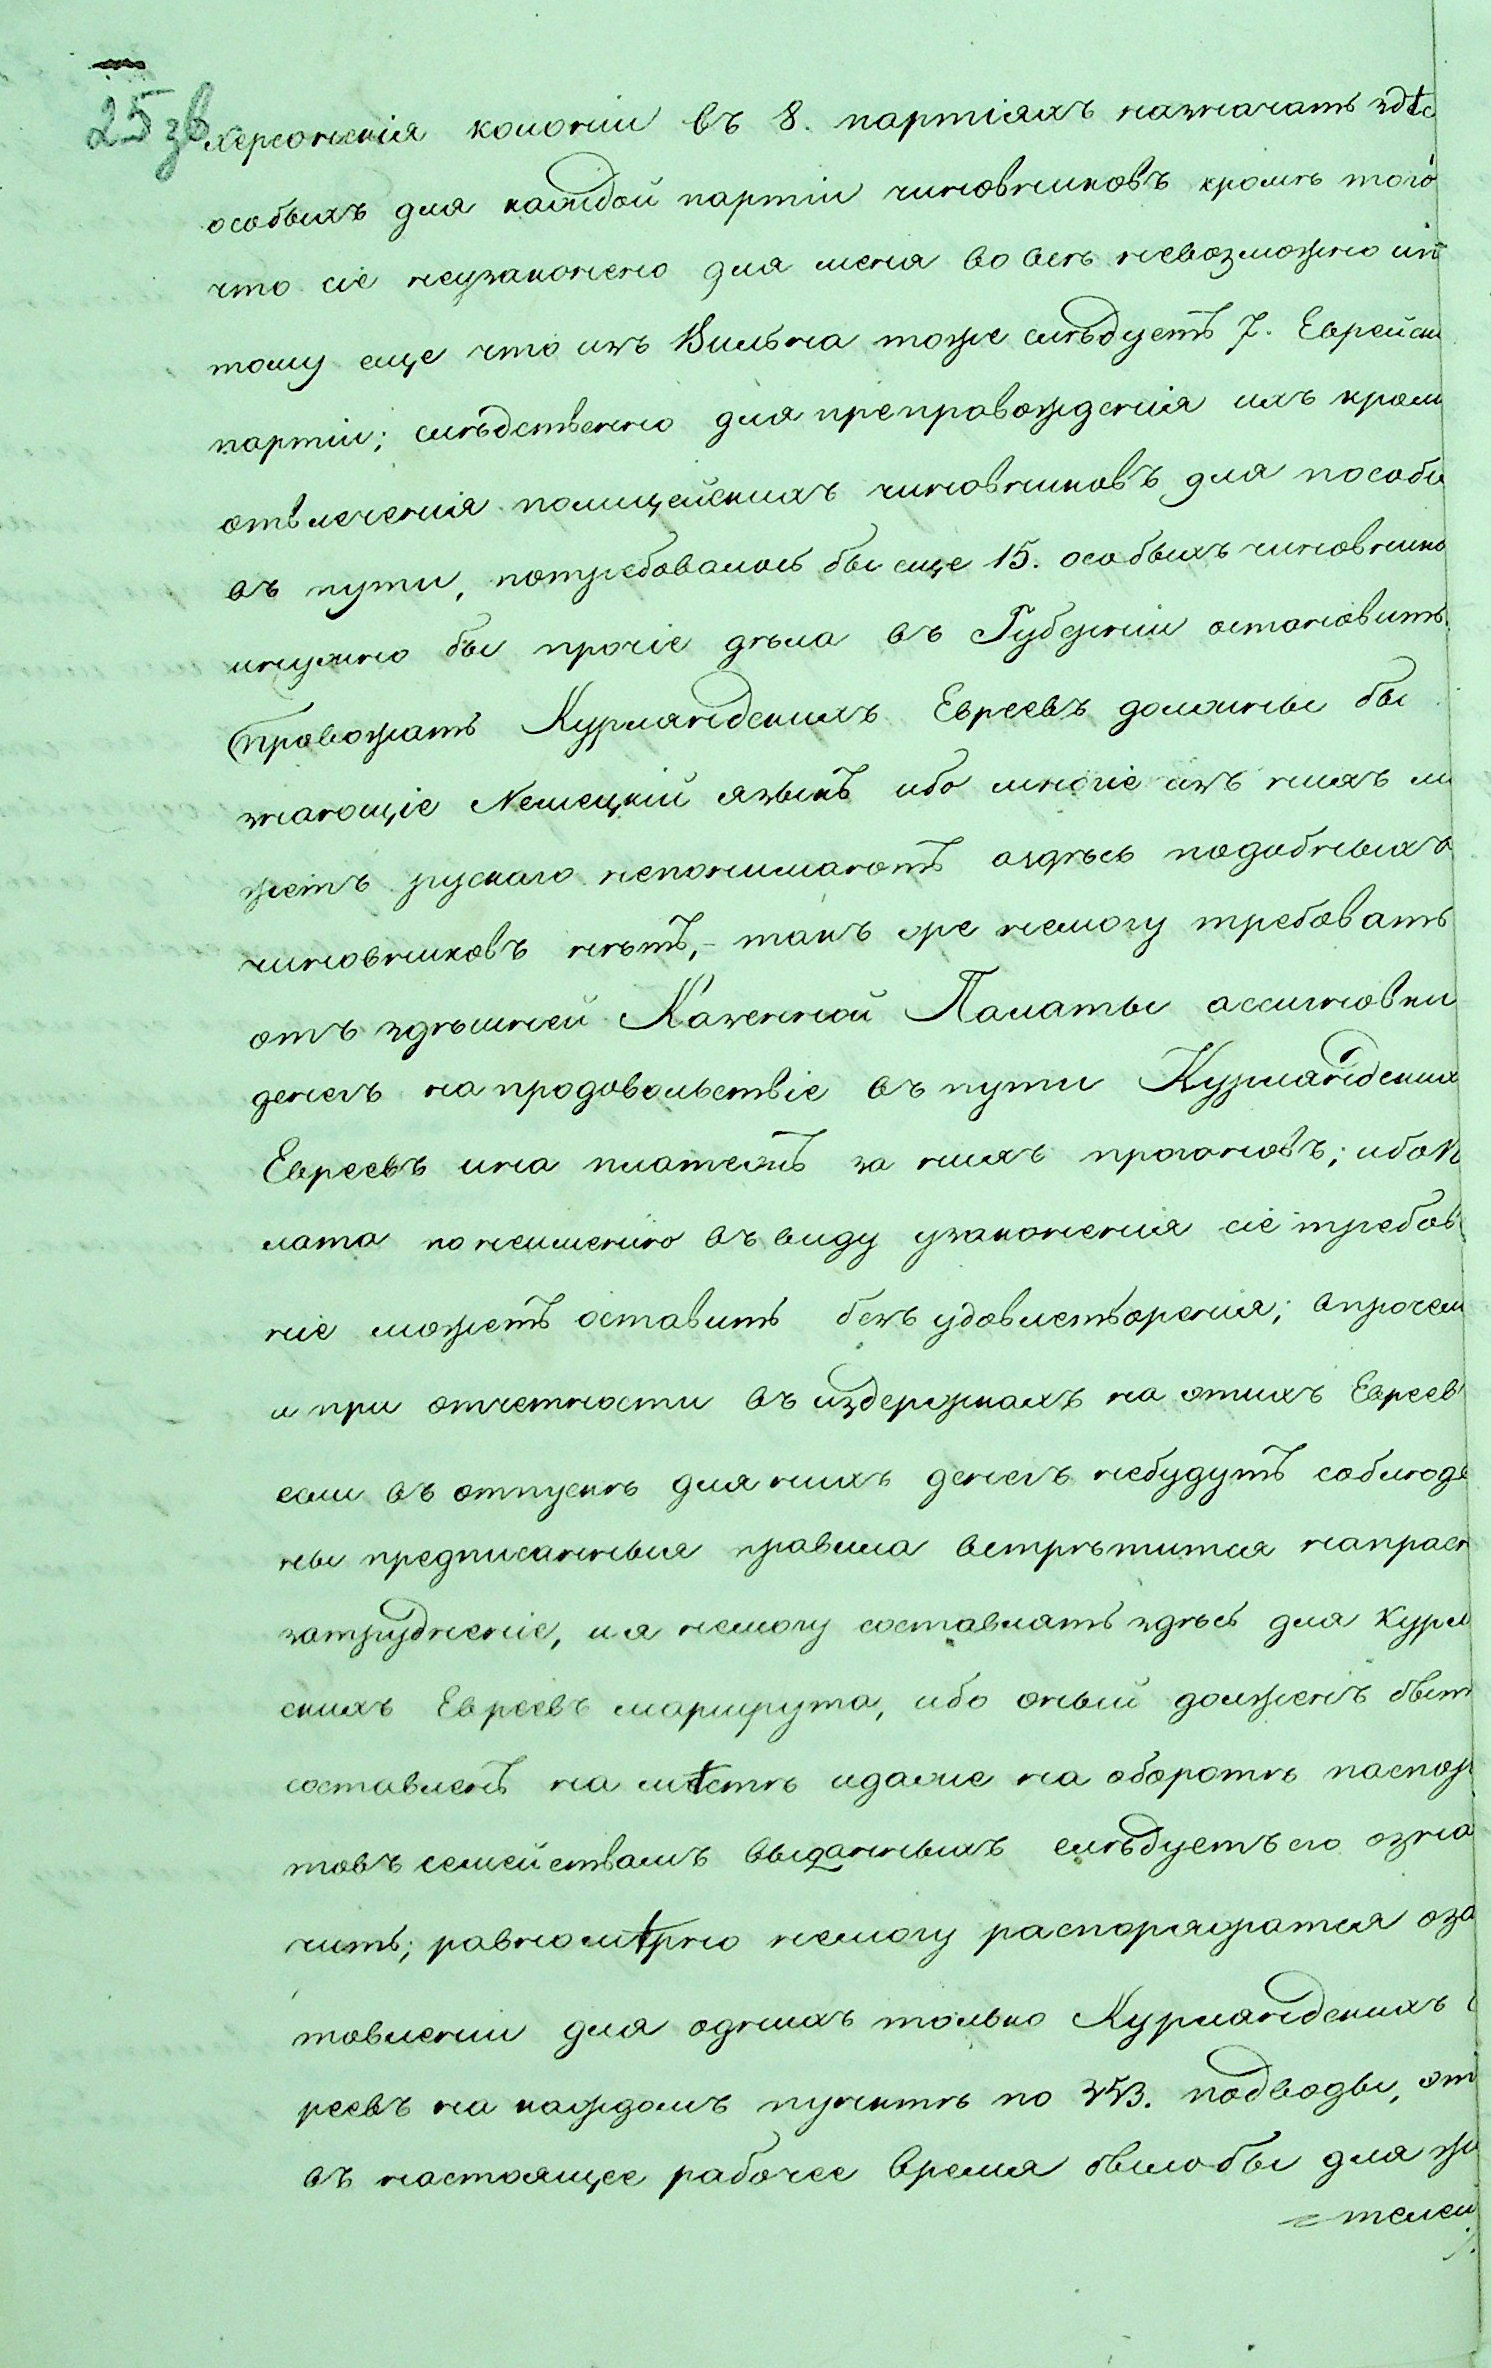 25 зв
херсонскія колоніи въ 8. партіяхъ назначать здѣс
особыхъ для каждой партіи чиновниковъ кромѣ того
что сіе неузаконено для меня во все невозможно ип
тому еще что изъ Вильна тоже слѣдуетъ 7. Еврейск
партіи; слѣдственно для препровожденія ихъ кром
отвлеченія полицейскихъ чиновниковъ для пособи
въ пути, потребовалось бы еще 15. особыхъ чиновнико
инужно бы прочіе дѣла въ Губерніи остановить.
(провожать Курляндскихъ Евреевъ должны бы
знающіе Немецкій языкъ ибо многіе изъ нихъ м
жетъ рускаго непонимаютъ аздѣсь подобныхъ
чиновниковъ нѣтъ,- такъ же немогу требовать
отъ здѣшней Казенной Палаты ассигновки
денегъ на продовольствіе въ пути Курляндских
Евреевъ ина платежъ за нихъ прогоновъ; ибо П
лата по неименію въ виду узаконенія сіе требов
ніе можетъ оставить безъ удовлетворенія; впрочем
и при отчетности въ издержкахъ на этихъ Еврeев
если въ отпускѣ для нихъ денегъ небудутъ соблюде
ны предписанныя правила встрѣтится напрасн
затрудненіе, ия немогу составлять здѣсь для Курл
скихъ Евреевъ маршрута, ибо оный долженъ быт
составленъ на мѣстѣ идаже на оборотѣ паспор
товъ семействамъ выданныхъ слѣдуетъ его озна
чить; равномѣрно немогу распоряжатся оза
товленіи для однихъ только Курляндскихъ Е
реевъ на каждомъ пунктѣ по подводы, эт
въ настоящее рабочее время былобы для жи
=телей